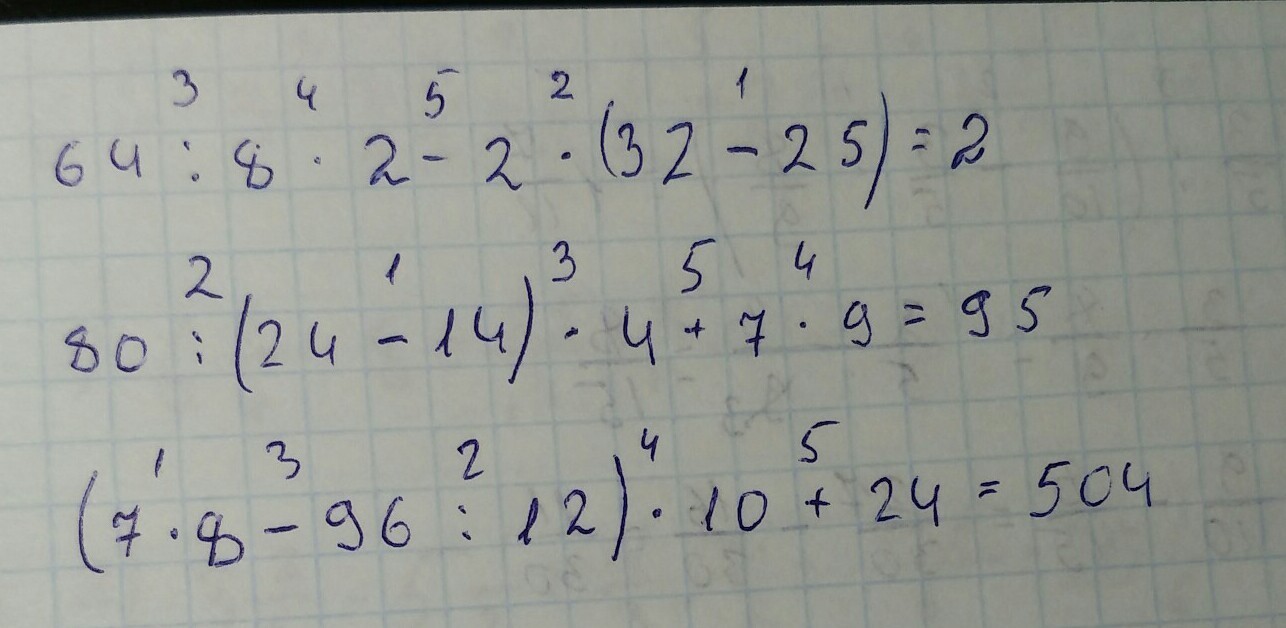 3 4 5 2 1
64 : 8 · 2 - 2 · (32 - 25) = 2
2 1 3 5 4
80 : (24 - 14) · 4 + 7 · 9 = 95
1 3 2 4 5
(7 · 8 - 96 : 12) · 10 + 24 = 504